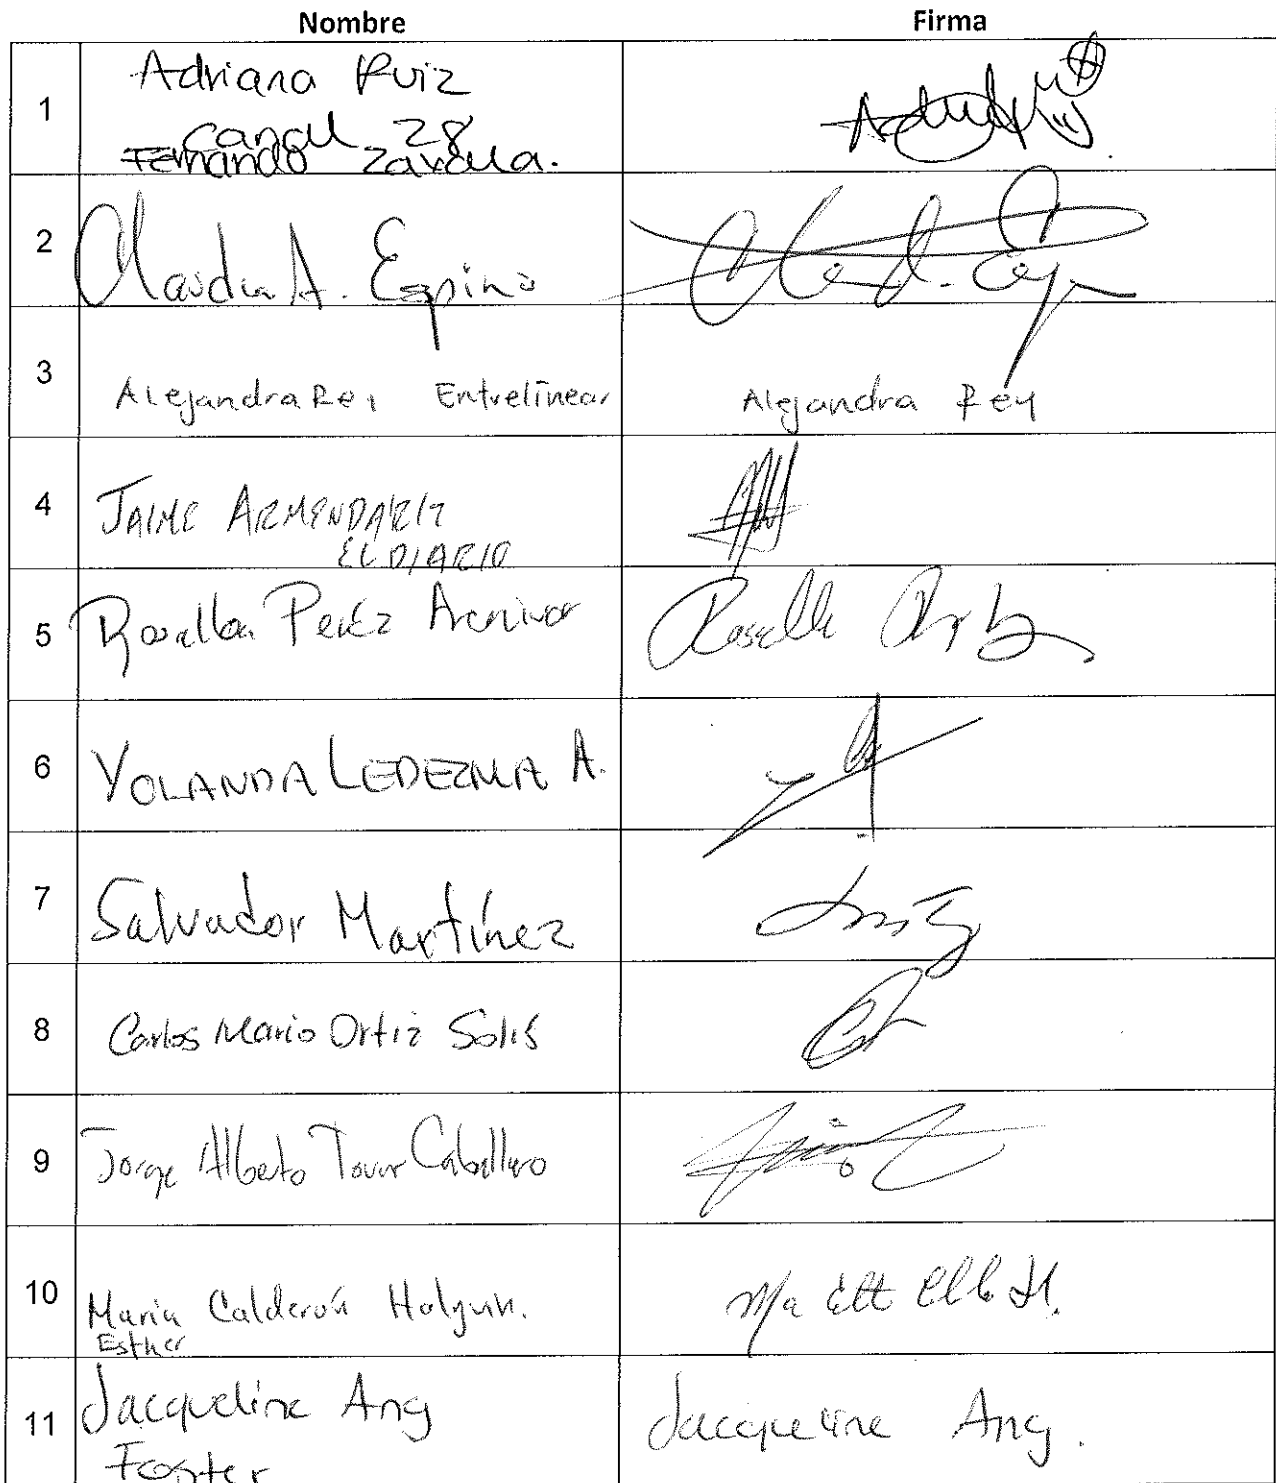 Nombre Firma
1 Adriana Ruiz
canal 28
Fernando Zavala.
2 Claudia A. Espino
3 Alejandra Rey Entrelinear Alejandra Rey
4 JAIME ARMENDARIZ
EL DIARIO
5 Rosalba Peréz
6 YOLANDA LEDEZMA A.
7 Salvador Martínez
8 Carlos Mario Ortiz Solís
9 Jorge Alberto Tovar Caballero
10 María Calderón Holguín.
Esther
11 Jacqueline Ang Jacqueline Ang.
Foster